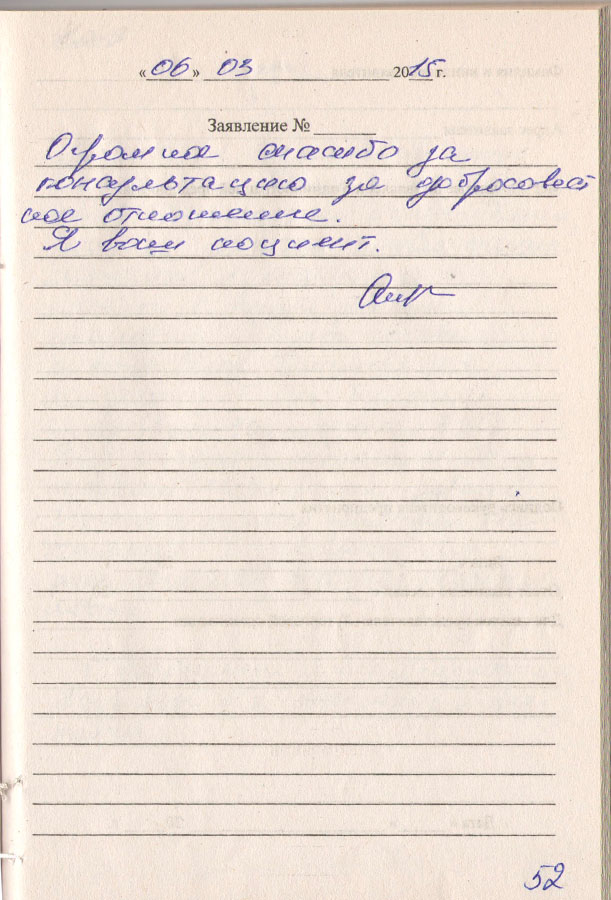 « 06 » 03 2015 г.
Заявление №
Огромное спасибо за
консультацию за добросовест
ное отношение.
Я ваш пациент.
52